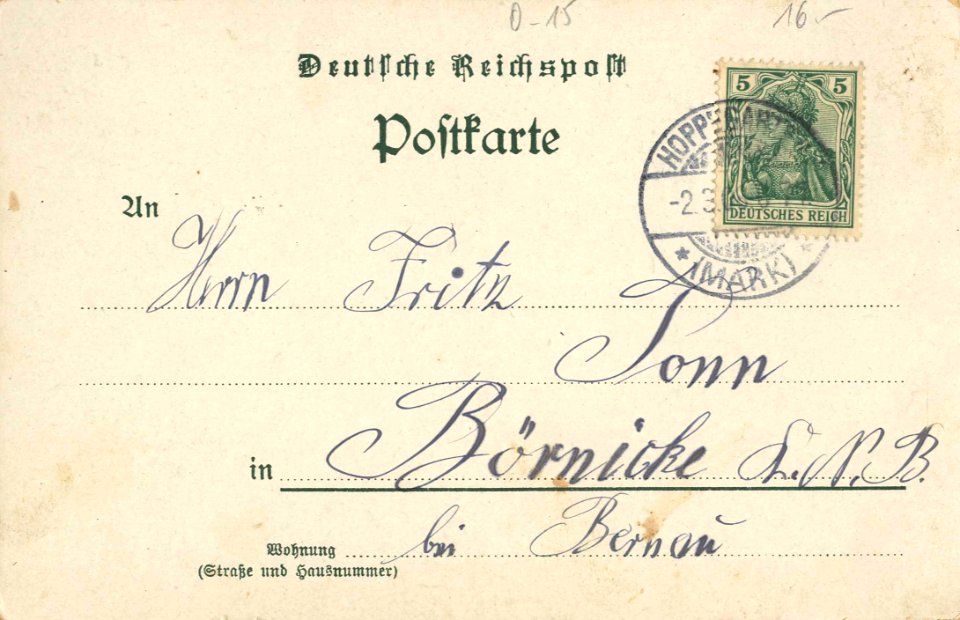 0-15 16.-
Deutsche Reichspost
Postkarte
5 5
DEUTSCHES REICH
HOPPEGARTEN
-2.3.
* (MARK) *
An
Herrn Fritz
Tonn
in Börnicke
bei Bernau
Wohnung
(Straße und Hausnummer)